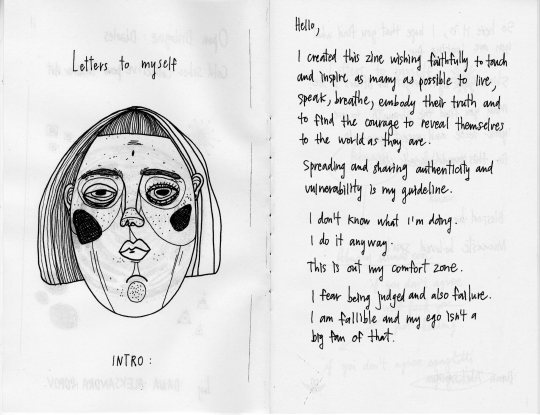 Letters to myself
INTRO:
Hello,
I created this zine wishing faithfully to touch
and inspire as many as possible to live,
speak, breathe, embody their truth and
to find the courage to reveal themselves
to the world as they are.
Spreading and sharing authenticity and
vulnerability is my guideline.
I don't know what I'm doing.
I do it anyway.
This is out my comfort zone.
I fear being judged and also failure.
I am fallible and my ego isn't a
big fan of that.